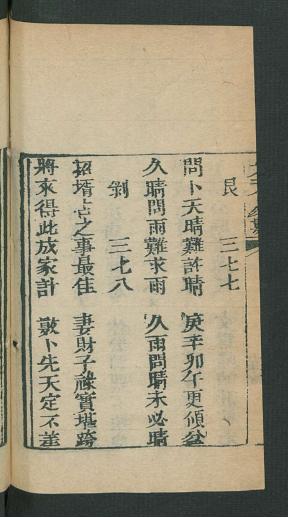 艮　三七七
問卜天晴難許晴　庚辛卯午更傾盆
久晴問雨難求雨　久雨問晴未必晴
剝　三七八
招壻占之事最佳　妻財子祿實堪跨
將來得此成家計　數卜先天定不差